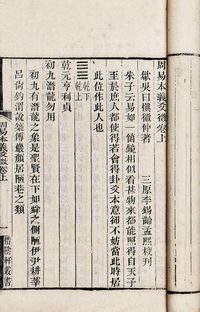 周易本義爻徵卷上
歙吳曰慎徽仲著 三原李錫齡孟熙校刊
朱子云易如一箇鏡相似看甚物來都能照得自天子
至於庶人都使得若會得卦爻本意卻不妨當此時居
此位作此人也
乾下
乾上
乾元亨利貞
初九潛龍勿用
初九有潛龍之象是聖賢在下如舜之側陋伊尹耕莘
呂尚釣渭說築傅巖顏居陋巷之類
周易本義爻徵卷上
惜陰軒叢書